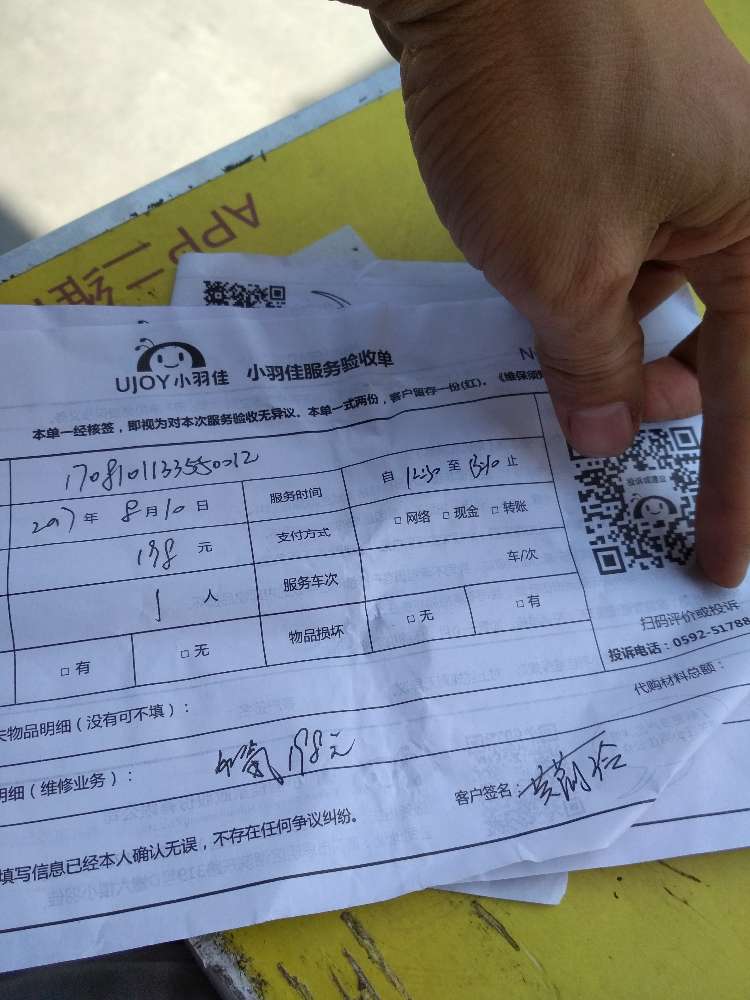 APP二维
UJOY小羽佳 小羽佳服务验收单
N
本单一经核签，即视为对本次服务验收无异议。本单一式两份，客户留存一份(红)。《维保须
1708101133550012
2017年8月10日 服务时间 自 12:30 至 13:10 止
198元 支付方式 □ 网络 □ 现金 □ 转账
1人 服务车次 车/次
□ 有 □ 无 物品损坏 □ 无 □ 有
投诉或建议
扫码评价或投诉
投诉电话：0592-51788
物品明细（没有可不填）： 代购材料总额：
明细（维修业务）： 加氟198元
客户签名：
填写信息已经本人确认无误，不存在任何争议纠纷。